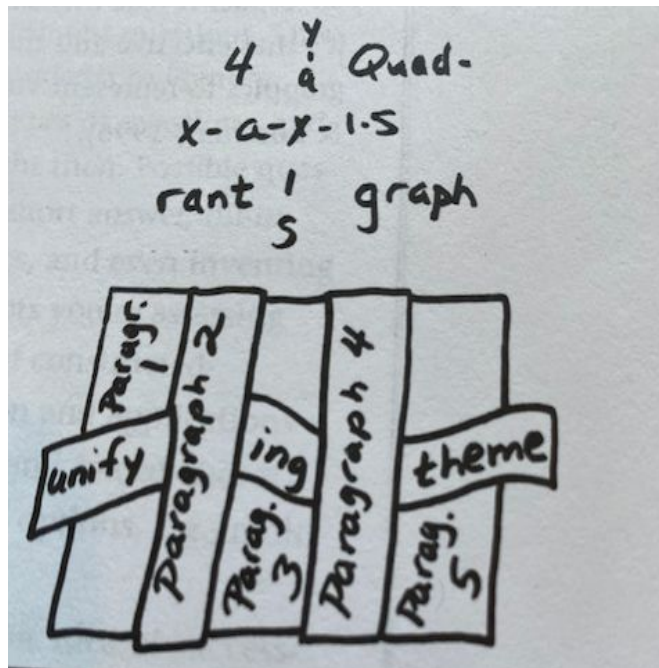 y
4 a Quad-
x-a-x-1.5
rant 1 graph
S
Paragr. 1
Paragraph 2
Parag. 3
Paragraph 4
Parag. 5
unify ing theme